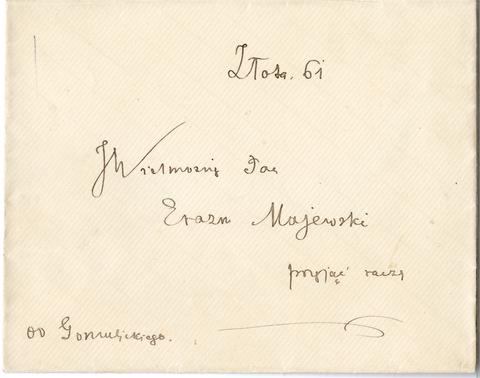 Złota. 61
JWielmożny Pan
Erazm Majewski
przyjąć raczy
od Gomulickiego.